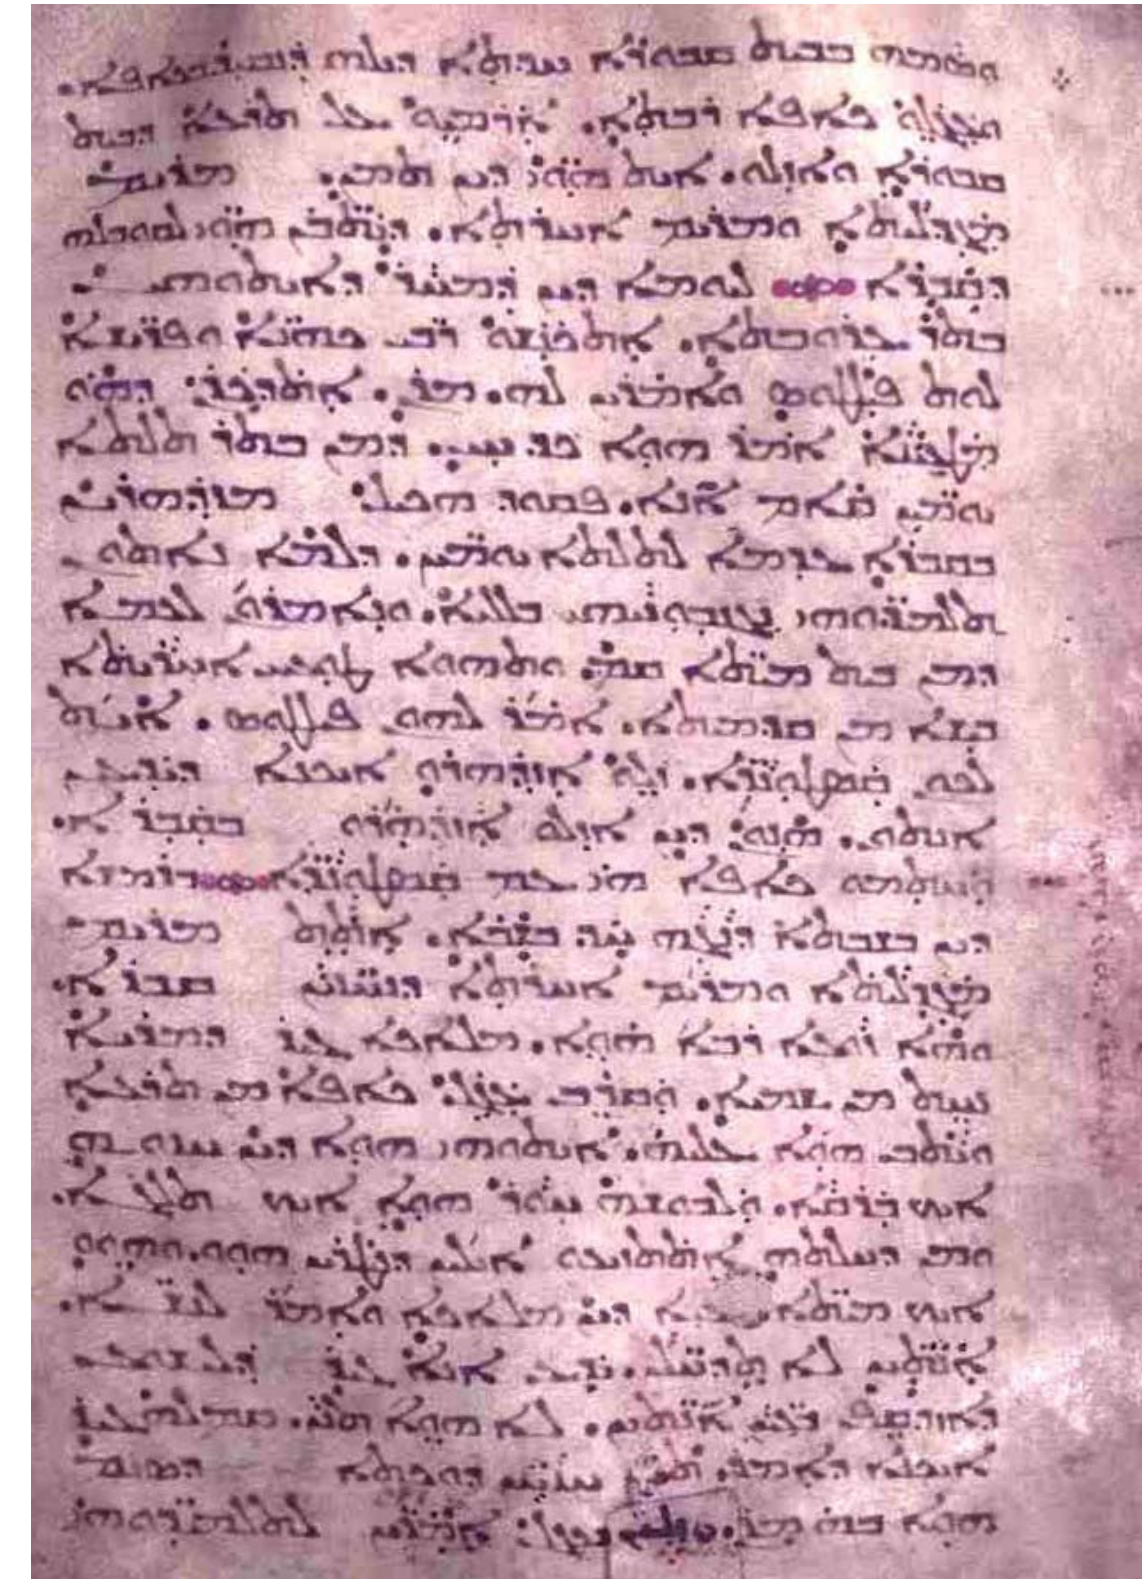 ܘܣܡܗ ܒܒܝܬ ܩܒܘܪܐ ܚܕܬܐ ܕܝܠܗ ܕܢܩܝܪ ܒܟܐܦܐ.
ܘܥܓܠܘ ܟܐܦܐ ܪܒܬܐ. ܐܪܡܝܘ ܥܠ ܬܪܥܐ ܕܒܝܬ
ܩܒܘܪܐ ܘܐܙܠܘ. ܐܝܬ ܗܘܝ ܕܝܢ ܬܡܢ. ܡܪܝܡ
ܡܓܕܠܝܬܐ ܘܡܪܝܡ ܐܚܪܬܐ. ܕܝܬܒܢ ܗܘܝ ܠܘܩܒܠܗ
ܕܩܒܪܐ ܠܝܘܡܐ ܕܝܢ ܕܡܚܪ ܕܐܝܬܘܗܝ
ܒܬܪ ܥܪܘܒܬܐ. ܐܬܟܢܫܘ ܪܒܝ ܟܗܢܐ ܘܦܪܝܫܐ
ܠܘܬ ܦܝܠܛܘܣ ܘܐܡܪܝܢ ܠܗ. ܡܪܢ. ܐܬܕܟܪܢ ܕܗܘ
ܡܛܥܝܢܐ ܐܡܪ ܗܘܐ ܟܕ ܚܝ. ܕܡܢ ܒܬܪ ܬܠܬܐ
ܝܘܡܝܢ ܩܐܡ ܐܢܐ. ܦܩܘܕ ܗܟܝܠ ܡܙܕܗܪܝܢ
ܒܩܒܪܐ ܥܕܡܐ ܠܬܠܬܐ ܝܘܡܝܢ. ܕܠܡܐ ܢܐܬܘܢ
ܬܠܡܝܕܘܗܝ ܢܓܢܒܘܢܝܗܝ ܒܠܠܝܐ. ܘܢܐܡܪܘܢ ܠܥܡܐ
ܕܡܢ ܒܝܬ ܡܝܬܐ ܩܡ. ܘܬܗܘܐ ܛܘܥܝܝ ܐܚܪܝܬܐ
ܒܝܫܐ ܡܢ ܩܕܡܝܬܐ. ܐܡܪ ܠܗܘܢ ܦܝܠܛܘܣ. ܐܝܬ
ܠܟܘܢ ܩܣܛܘܢܪܐ. ܙܠܘ ܐܙܕܗܪܘ ܐܝܟܢܐ ܕܝܕܥܝܢ
ܐܢܬܘܢ. ܗܢܘܢ ܕܝܢ ܐܙܠܘ ܐܙܕܗܪܘ ܒܩܒܪܐ.
ܘܚܬܡܘ ܟܐܦܐ ܗܝ ܥܡ ܩܣܛܘܢܪܐ ܒܪܡܫܐ
ܕܝܢ ܒܫܒܬܐ ܕܢܓܗ ܚܕ ܒܫܒܐ. ܐܬܬ ܡܪܝܡ
ܡܓܕܠܝܬܐ ܘܡܪܝܡ ܐܚܪܬܐ ܕܢܚܙܝܢ ܩܒܪܐ.
ܘܗܐ ܙܘܥܐ ܪܒܐ ܗܘܐ. ܡܠܐܟܐ ܓܝܪ ܕܡܪܝܐ
ܢܚܬ ܡܢ ܫܡܝܐ. ܘܩܪܒ ܥܓܠ ܟܐܦܐ ܡܢ ܬܪܥܐ
ܘܝܬܒ ܗܘܐ ܥܠܝܗ. ܐܝܬܘܗܝ ܗܘܐ ܕܝܢ ܚܙܘܗ
ܐܝܟ ܒܪܩܐ. ܘܠܒܘܫܗ ܚܘܪ ܗܘܐ ܐܝܟ ܬܠܓܐ.
ܘܡܢ ܕܚܠܬܗ ܐܬܬܙܝܥܘ ܐܝܠܝܢ ܕܢܛܪܝܢ ܗܘܘ. ܘܗܘܘ
ܐܝܟ ܡܝܬܐ. ܥܢܐ ܕܝܢ ܡܠܐܟܐ ܘܐܡܪ ܠܢܫܐ.
ܐܢܬܝܢ ܠܐ ܬܕܚܠܢ. ܝܕܥ ܐܢܐ ܓܝܪ ܕܠܝܫܘܥ
ܕܐܙܕܩܦ ܒܥܝܢ ܐܢܬܝܢ. ܠܐ ܗܘܐ ܬܢܢ. ܩܡ ܠܗ ܓܝܪ
ܐܝܟܢܐ ܕܐܡܪ. ܬܝܢ ܚܙܝܝܢ ܕܘܟܬܐ ܕܣܝܡ
ܗܘܐ ܒܗ ܡܪܢ. ܘܙܠܝܢ ܒܥܓܠ ܐܡܪܝܢ ܠܬܠܡܝܕܘܗܝ